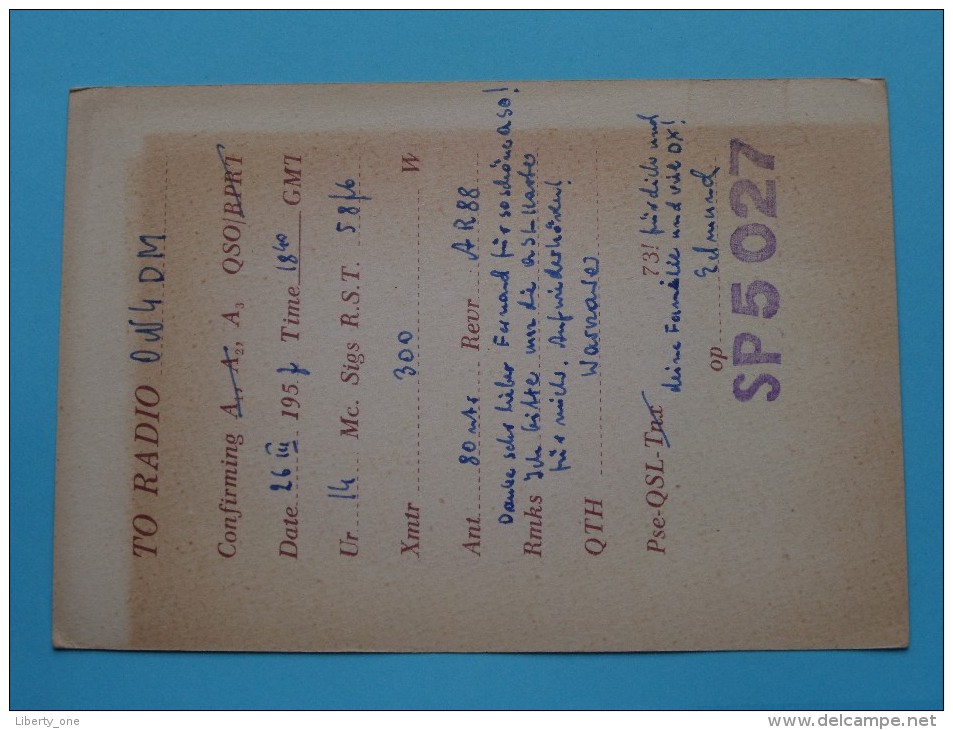 TO RADIO ON4DM
Confirming A₁, A₂, A₃ QSO/RPRT
Date 26 III 1957 Time 1840 GMT
Ur 14 Mc. Sigs R.S.T. 58/6
Xmtr 300 W
Ant. 80 mts Revr AR88
Danke sehr lieber Fernand für so schönes QSO!
Rmks Ich bitte um die QSL-Karte
für mich. Aufwiederhören!
QTH Warszawa
Pse-QSL-Tnx 73! für dich und
deine Familie und viel DX!
op Edmund
SP5 027
Liberty_one
www.delcampe.net